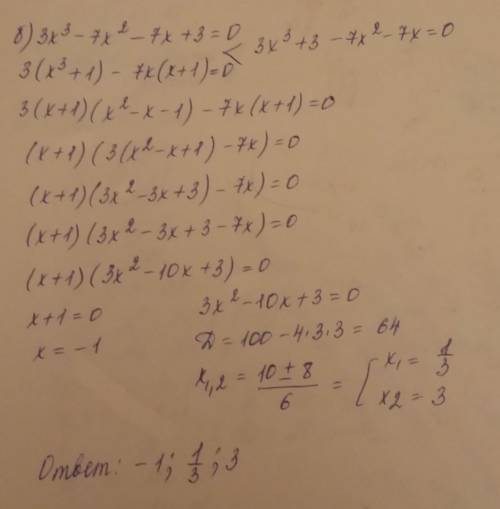 б) 3x³ - 7x² - 7x + 3 = 0 < 3x³ + 3 - 7x² - 7x = 0
3(x³ + 1) - 7x(x + 1) = 0
3(x + 1)(x² - x - 1) - 7x(x + 1) = 0
(x + 1)(3(x² - x + 1) - 7x) = 0
(x + 1)(3x² - 3x + 3) - 7x) = 0
(x + 1)(3x² - 3x + 3 - 7x) = 0
(x + 1)(3x² - 10x + 3) = 0
x + 1 = 0 3x² - 10x + 3 = 0
x = -1 Д = 100 - 4·3·3 = 64
x₁,₂ = (10 ± 8)/6 = [ x₁ = 1/3
x2 = 3
Ответ: -1; 1/3; 3